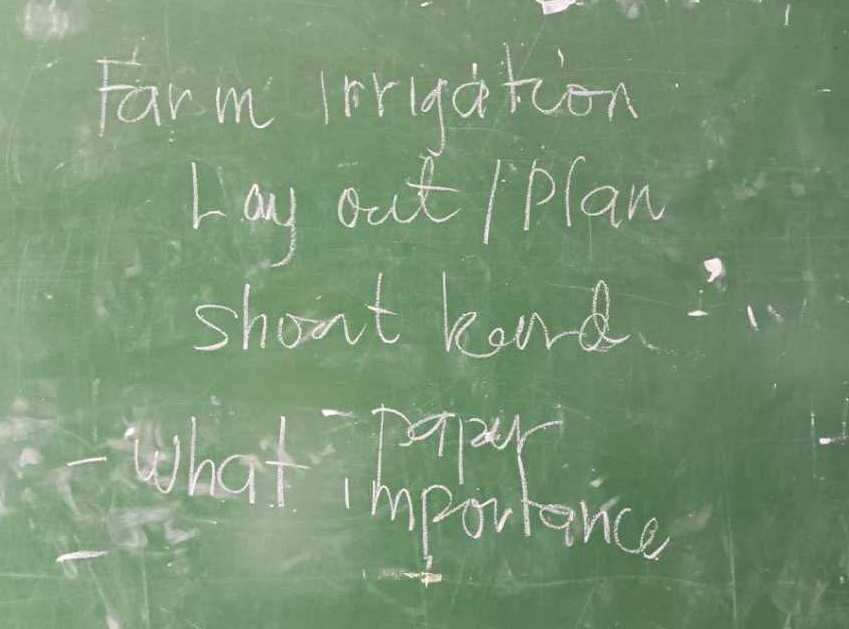 Farm irrigation
Lay out / Plan
short
paper
- What importance
-